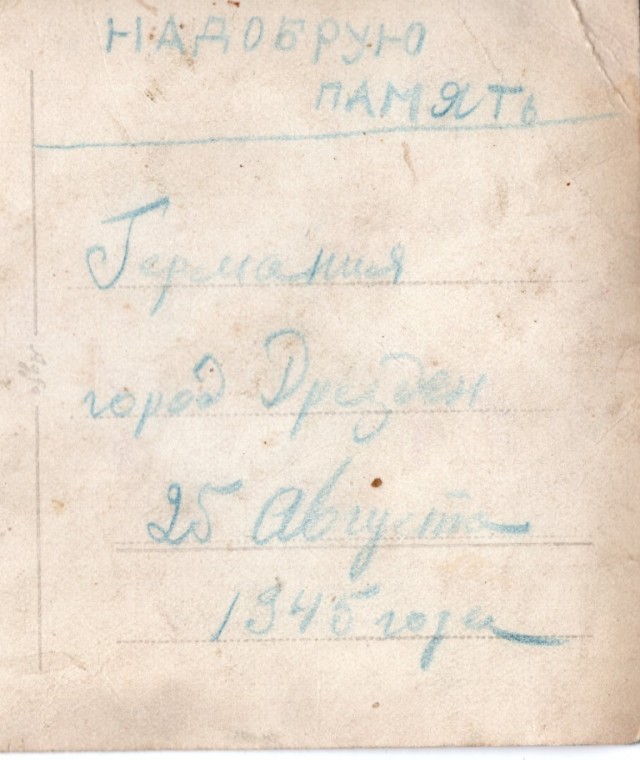 НАДОБРУЮ
ПАМЯТЬ
Германия
город Дрезден
25 Августа
1945 года